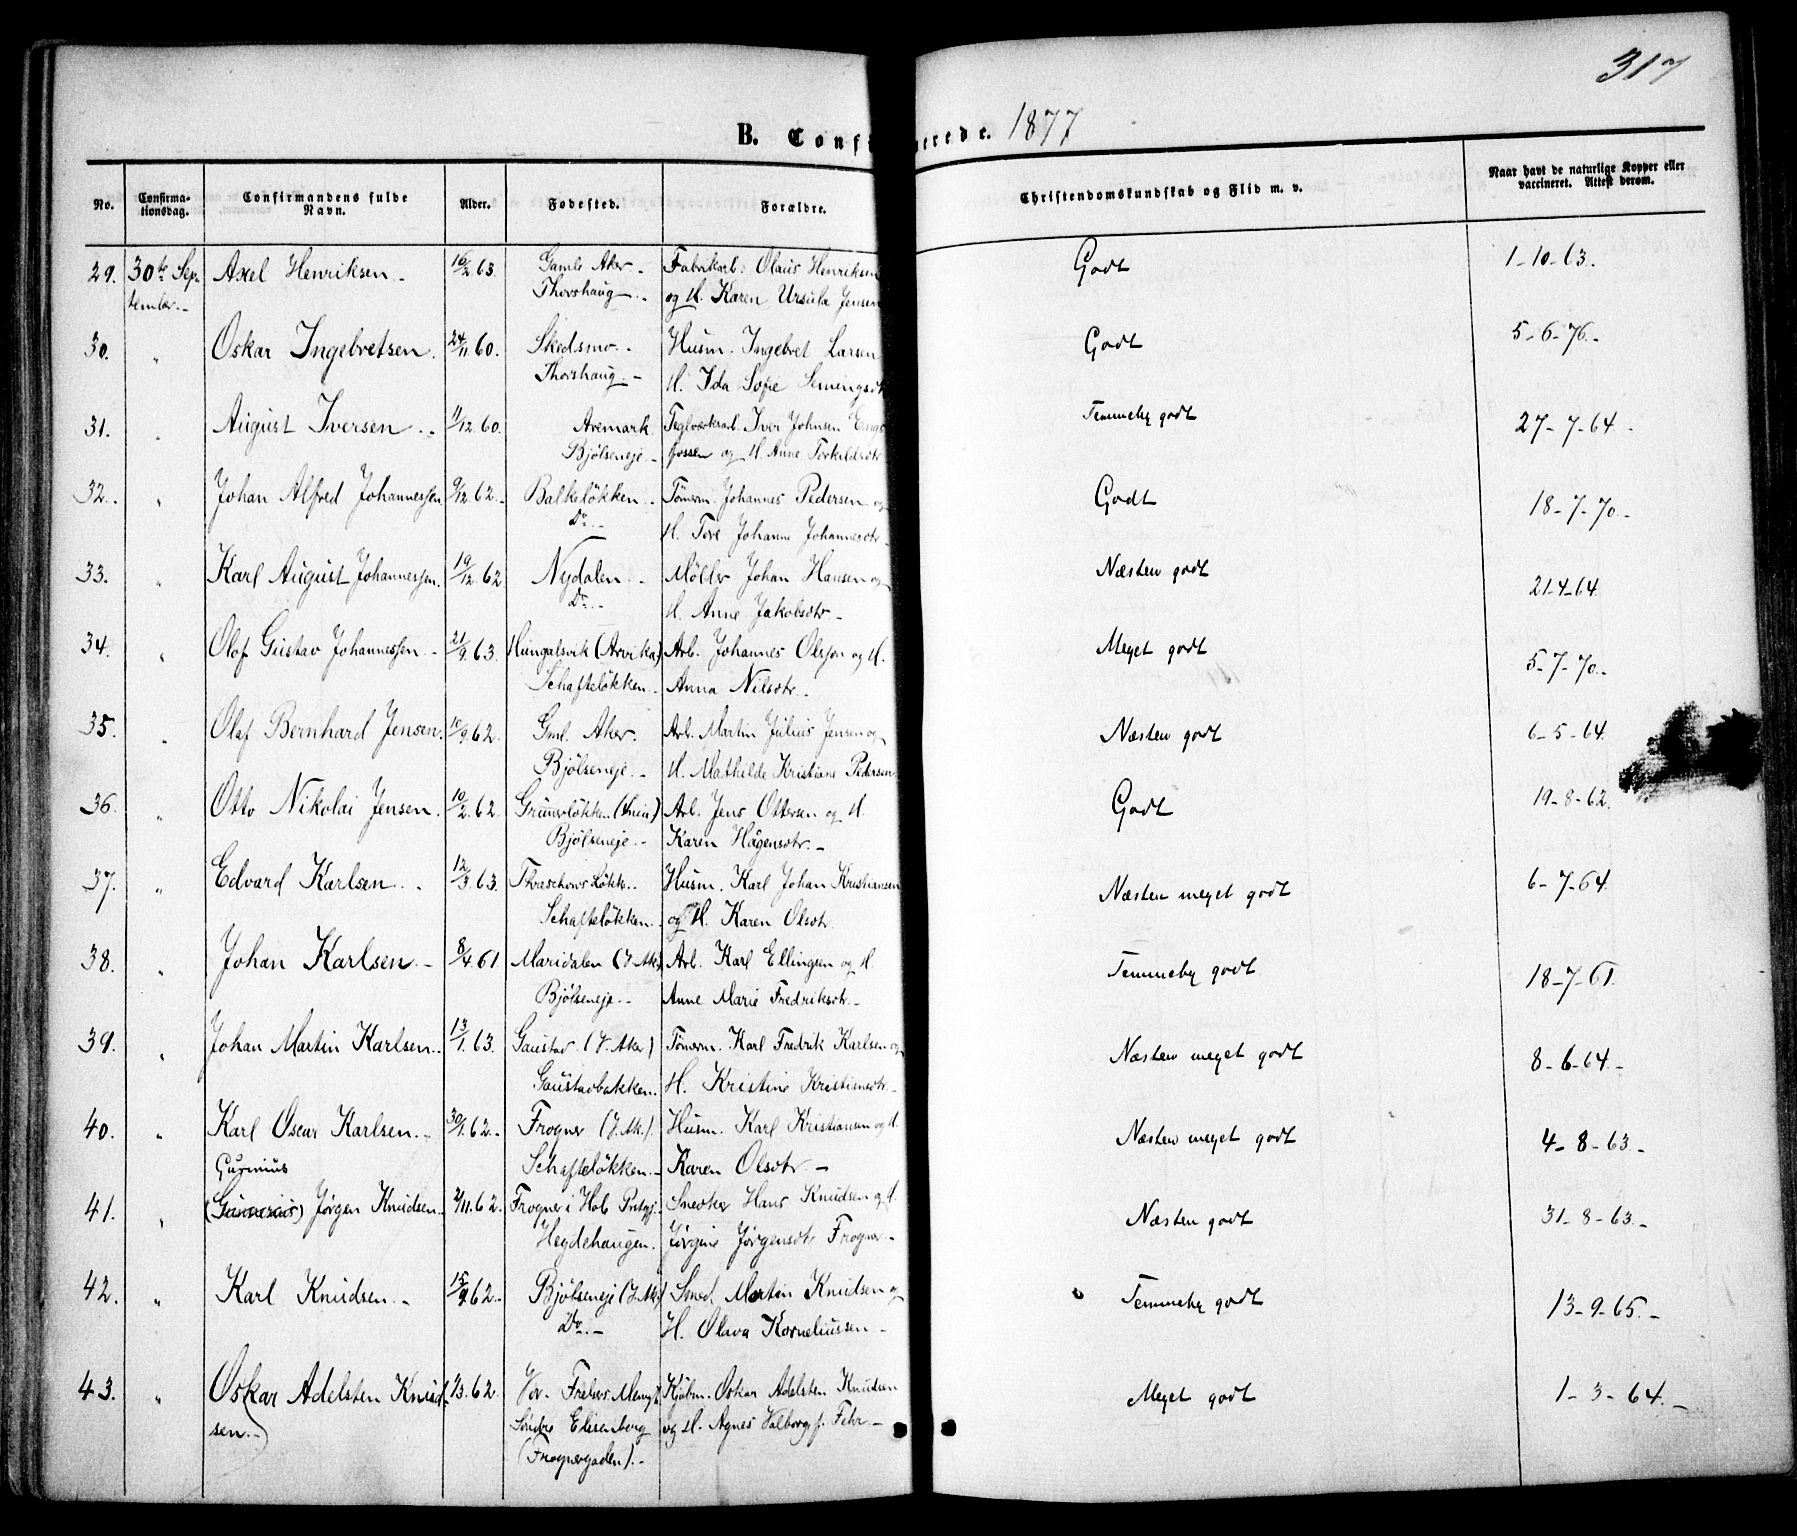 317
B. Conf erede. 1877
No. Confirma-tionsdag. Confirmandens fulde Navn. Alder. Fødested. Forældre. Christendomskundskab og Flid m. v. Naar havt de naturlige Kopper eller vaccineret. Attest derom.
29. 30te Sep- Axel Henriksen 16/2 63. Gamle Aker Fabrikarb: Olaus Henriksen Godt 1-10-63.
tember. Thorshaug og H. Karen Ursula Jensen
30. " Oskar Ingebretsen. 24/11 60. Skedsmo Husm. Ingebret Larsen Godt 5-6-76.
Thorshaug. H. Ida Sofie Semingsdt
31. " August Iversen 11/12 60. Aremark. Teglverksarb. Iver Johnsen Temmelig godt 27-7-64.
Bjølseneje fossen og H. Anne Torkildsdtr
32. " Johan Alfred Johannessen 9/12 62. Balkeløkken Tømrm. Johannes Pedersen og Godt 18-7-70.
Do. H. Tore Johanne Johannesdtr
33. " Karl August Johannessen. 19/12 62 Nydalen Møller Johan Hansen og Næsten godt 21-4-64.
Do. H. Anne Jakobsdtr
34. " Olof Gustav Johannessen 21/9 63. Hungalsvik (Arvika) Arb. Johannes Olsson og H. Meget godt 5-7-70.
Schafteløkken. Anna Nilsdtr.
35. " Olaf Bernhard Jensen. 10/9 62. Gml. Aker. Arb. Martin Julius Jensen og Næsten godt 6-5-64.
Bjølseneje. H. Mathilde Kristiane Pedersen
36. " Otto Nikolai Jensen. 10/2 62. Grünerløkken Arb. Jens Ottersen og H. Godt 19-8-62.
Bjølseneje. Karen Hagensdtr.
37. " Edvard Karlsen. 12/3 63. Thraschows Løkk. Husm. Karl Johan Kristiansen Næsten meget godt 6-7-64.
Schafteløkken. og H. Karen Olsdtr.
38. " Johan Karlsen. 8/4 61 Maridalen (V. Ak.) Arb. Karl Ellingsen og H. Temmelig godt 18-7-61.
Bjølseneje. Anne Marie Fredriksdtr.
39. " Johan Martin Karlsen. 13/1 63. Gaustad. (V. Aker) Tømrm. Karl Fredrik Karlsen og Næsten meget godt 8-6-64.
Gaustadbakken. H. Kristine Kristiansdtr
40. " Karl Oscar Karlsen. 30/1 62. Frogner (V. Ak.). Husm. Karl Kristiansen og H. Næsten meget godt 4-8-63.
Schafteløkken. Karen Olsdtr.
41. " Jørgen Knudsen. 2/11 62. Frogner i Hob. Prstgj. Snedker Hans Knudsen og H. Næsten godt 31-8-63.
Hegdehaugen. Jørgine Jørgensdtr Frogner
42. " Karl Knudsen. 15/9 62. Bjølseneje (V. Ak.) Smed Martin Knudsen og Temmelig godt 13-9-65.
Do. H. Olava Korneliussen
43. " Oskar Adelsten Knud- 1/3 62. Vor Frelsers Menigh. Kjøbm. Oskar Adelsten Knudsen Meget godt 1-3-64.
sen. Søndre Elisenberg og H. Agnes Valborg f. Fehr.
(Frognergaden).